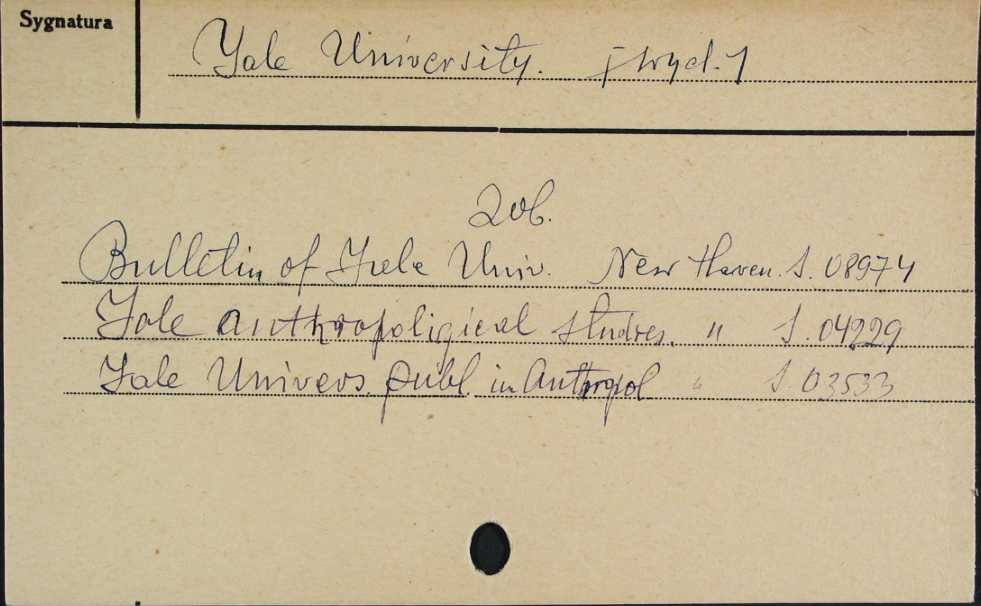 Sygnatura
Yale University. [wyd.]
Zob.
Bulletin of Yale Univ. New Haven. S. 08974
Yale anthropoligical studies. " S. 04229
Yale Univers. publ. in Anthropol " S. 03533